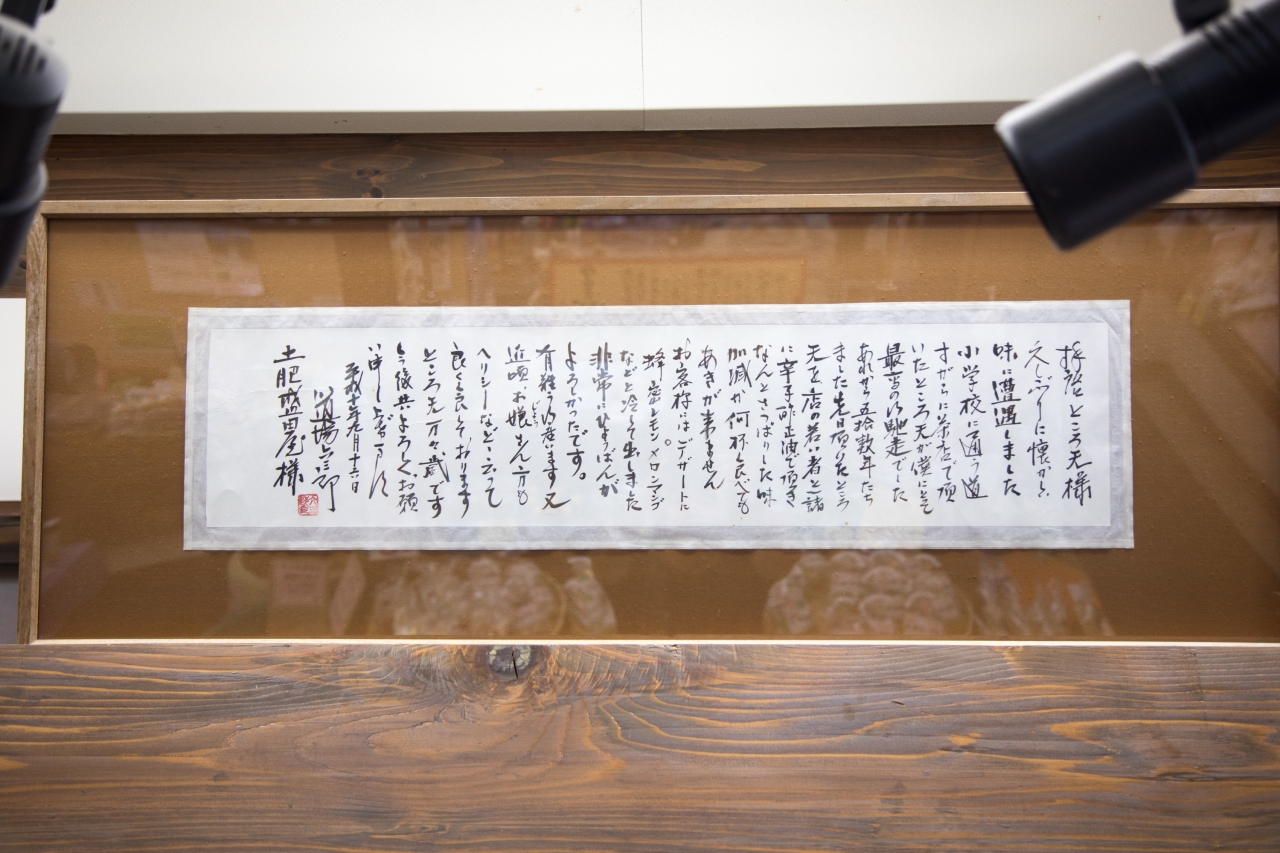 拝啓 ところ天様
久しぶりに懐かしい
味に遭遇しました
小学校に通う道
すがらに茶店で頂
いたところ天が僕にとって
最高の御馳走でした
あれから五拾数年たち
ました先日頂いたところ
天を店の若い者と諸
に辛子酢正油で頂き
なんとさっぱりした味
加減か何杯食べても
あきが来ません
お客様にはデザートに
蜂蜜レモン、メロンマンゴ
などと冷して出しました
非常にひょうばんが
よろしかったです。
有難う御座います又
近頃お嬢さん方も
ヘリシーなどと云って
良く食しております
ところ天万々歳です
今後共よろしくお願
い申し上げます
平成十年九月十六日
道場六三郎
土肥盛田屋様